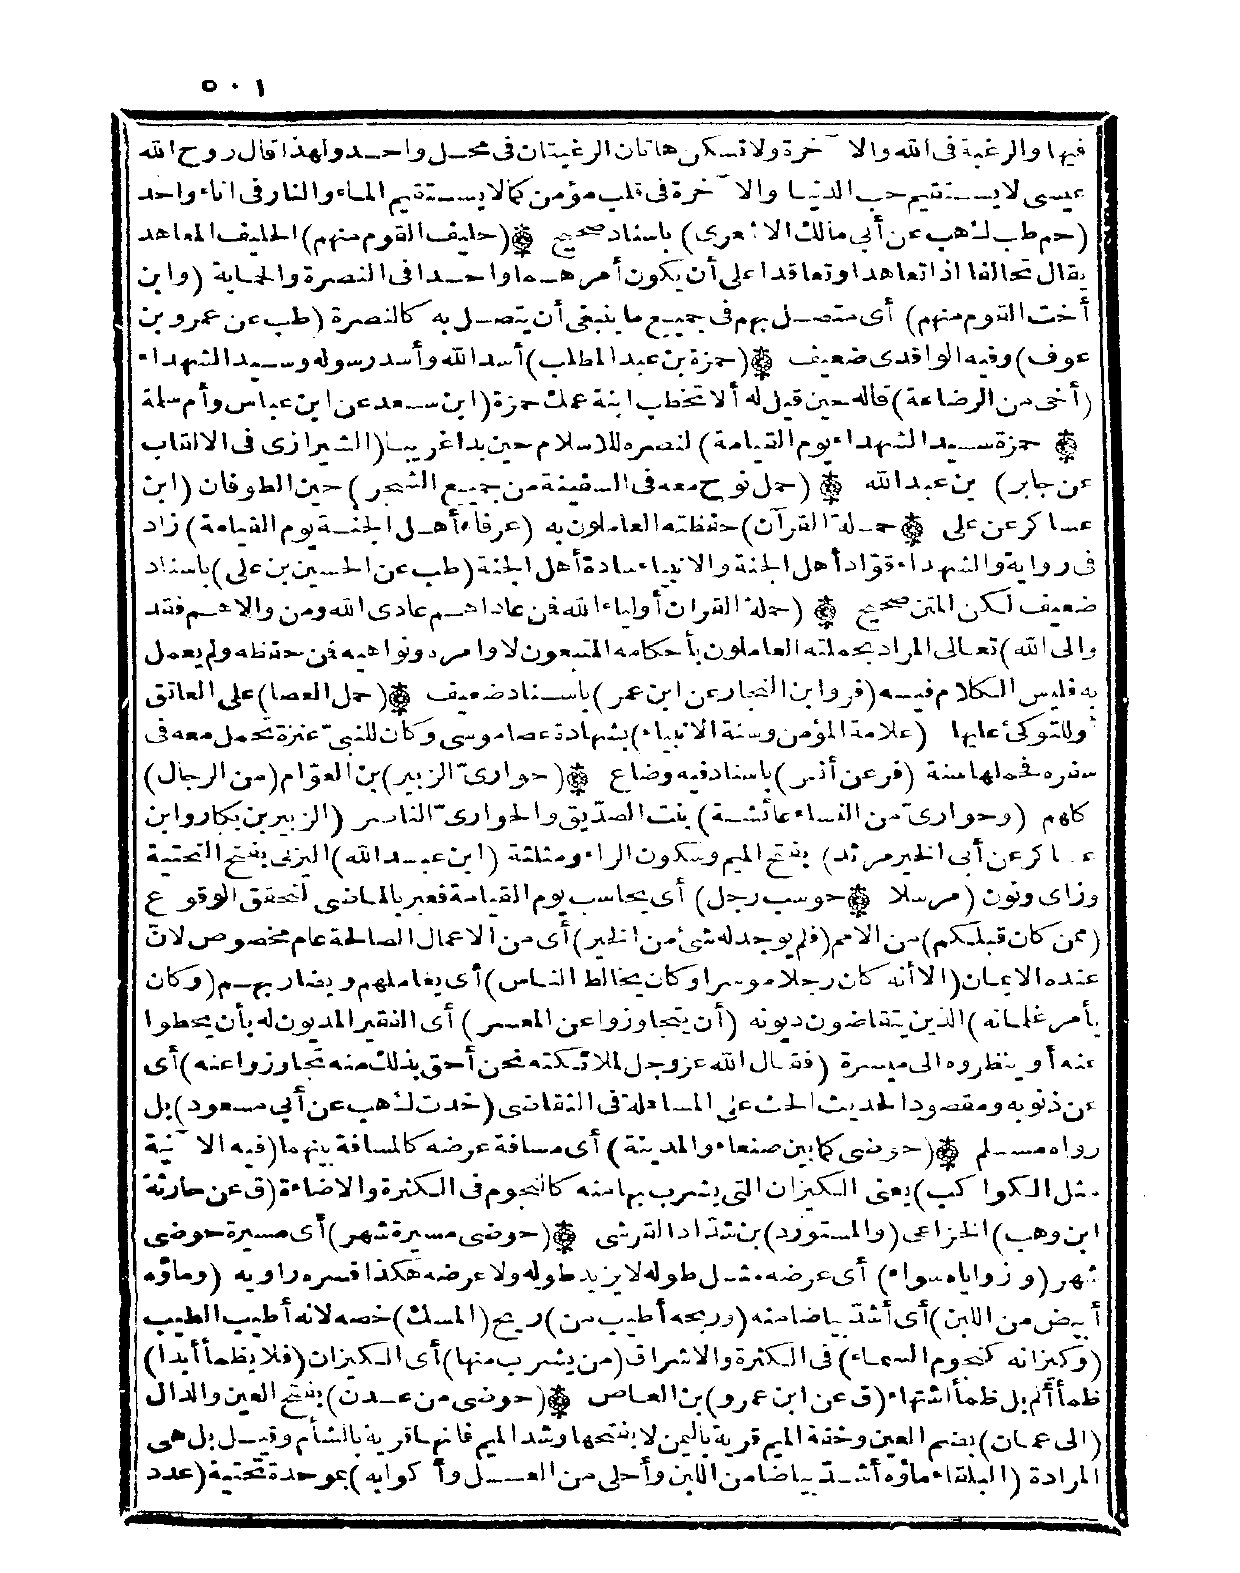 ٥٠١
فيها والرغبة فى الله والآخرة ولا تسكن هاتان الرغبتان فى محل واحد ولهذا قال روح الله
عيسى لا يستقيم حب الدنيا والآخرة فى قلب مؤمن كما لا يستقيم الماء والنار فى اناء واحد
(حم طب ك هب عن أبى مالك الاشعرى) باسناد صحيح ۞ (حليف القوم منهم) الحليف المعاهد
يقال تحالفا اذا تعاهدا وتعاقدا على أن يكون أمرهما واحدا فى النصرة والحماية (وابن
أخت القوم منهم) أى متصل بهم فى جميع ما ينبغى أن يتصل به كالنصرة (طب عن عمرو بن
عوف) وفيه الواقدى ضعيف ۞ (حمزة بن عبد المطلب) أسد الله وأسد رسوله وسيد الشهداء
(أخى من الرضاعة) قاله حين قيل له ألا تخطب ابنة عمك حمزة (ابن سعد عن ابن عباس وأم سلمة
۞ حمزة سيد الشهداء يوم القيامة) لنصره للاسلام حين بدا غريبا (الشيرازى فى الالقاب
عن جابر) بن عبد الله ۞ (حمل نوح معه فى السفينة من جميع الشجر) حين الطوفان (ابن
عساكر عن على ۞ حملة القرآن) حفظته العاملون به (عرفاء أهل الجنة يوم القيامة) زاد
فى رواية والشهداء قوّاد أهل الجنة والانبياء سادة أهل الجنة (طب عن الحسين بن على) باسناد
ضعيف لكن المتن صحيح ۞ (حملة القرآن أولياء الله فمن عاداهم عادى الله ومن والاهم فقد
والى الله) تعالى المراد بحملته العاملون بأحكامه المتبعون لاوامره ونواهيه فمن حفظه ولم يعمل
به فليس الكلام فيه (فر وابن النجار عن ابن عمر) باسناد ضعيف ۞ (حمل العصا) على العاتق
أو للتوكئ عليها (علامة المؤمن وسنة الانبياء) بشهادة عصا موسى وكان للنبىّ عنزة تحمل معه فى
سفره فحملها سنة (فر عن أنس) باسناد فيه وضاع ۞ (حوارىّ الزبير) بن العوّام (من الرجال)
كلهم (وحوارىّ من النساء عائشة) بنت الصدّيق والحوارىّ الناصر (الزبير بن بكار وابن
عساكر عن أبى الخير مرثد) بفتح الميم وسكون الراء ومثلثة (ابن عبد الله) اليزنى بفتح التحتية
وزاى ونون (مرسلا ۞ حوسب رجل) أى يحاسب يوم القيامة فعبر بالماضى لتحقق الوقوع
(ممن كان قبلكم) من الامم (فلم يوجد له شئ من الخير) أى من الاعمال الصالحة عام مخصوص لانّ
عنده الايمان (الا أنه كان رجلا موسرا وكان يخالط الناس) أى يعاملهم ويضاربهم (وكان
يأمر غلمانه) الذين يتقاضون ديونه (أن يتجاوزوا عن المعسر) أى الفقير المديون له بأن يحطوا
عنه أو ينظروه الى ميسرة (فقال الله عز وجل لملائكته نحن أحق بذلك منه تجاوزوا عنه) أى
عن ذنوبه ومقصود الحديث الحث على المساهلة فى التقاضى (خد ت ك هب عن أبى مسعود) بل
رواه مسلم ۞ (حوضى كما بين صنعاء والمدينة) أى مسافة عرضه كالمسافة بينهما (فيه الآنية
مثل الكواكب) يعنى الكيزان التى يشرب بها منه كالنجوم فى الكثرة والاضاءة (ق عن حارثة
ابن وهب) الخزاعى (والمستورد) بن شدّاد القرشى ۞ (حوضى مسيرة شهر) أى مسيرة حوضى
شهر (وزواياه سواء) أى عرضه مثل طوله لا يزيد طوله ولا عرضه هكذا فسره راويه (وماؤه
أبيض من اللبن) أى أشدّ بياضا منه (وريحه أطيب من) ريح (المسك) خصه لانه أطيب الطيب
(وكيزانه كنجوم السماء) فى الكثرة والاشراق (من يشرب منها) أى الكيزان (فلا يظمأ أبدا)
ظمأ ألم بل ظمأ اشتهاء (ق عن ابن عمرو) بن العاص ۞ (حوضى من عدن) بفتح العين والدال
(الى عمان) بضم العين وخفة الميم قرية باليمن لا بفتحها وشد الميم فانها قرية بالشأم وقيل بل هى
المرادة (البلقاء ماؤه أشدّ بياضا من اللبن وأحلى من العسل وأكوابه) بموحدة تحتية (عدد